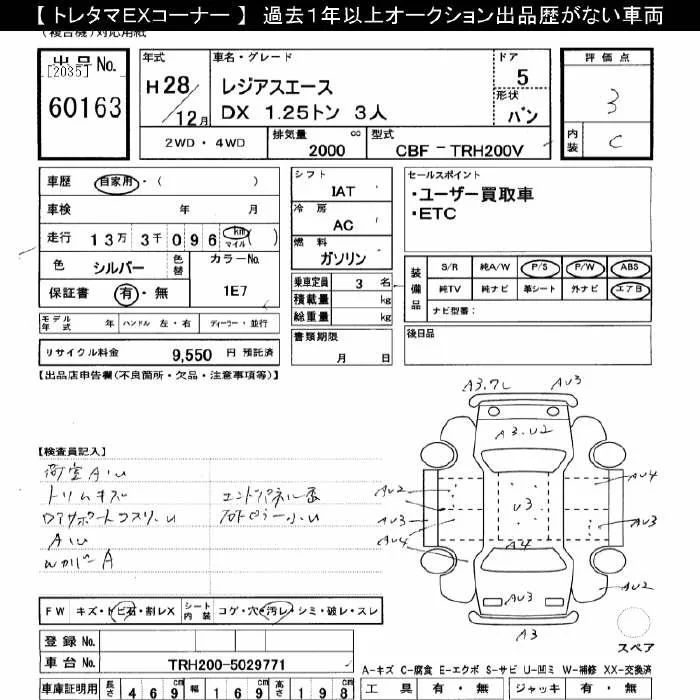 【 トレタマEXコーナー 】 過去1年以上オークション出品歴がない車両
(複合機)対応用紙
出品No.
[2035]
60163
年式
H28/12月
車名・グレード
レジアスエース
DX 1.25トン 3人
ドア
5
形状
バン
評価点
3
内装
C
2WD・4WD
排気量
cc
2000
型式
CBF-TRH200V
車歴 自家用・( )
車検 年 月
走行 13万 3千096 km マイル ( )
色 シルバー 色替
カラーNo.
1E7
保証書 有・無
シフト
IAT
冷房
AC
燃料
ガソリン
乗車定員 3 名
積載量 kg
総重量 kg
セールスポイント
・ユーザー買取車
・ETC
装備品
S/R 純A/W P/S P/W ABS
純TV 純ナビ 革シート 外ナビ エアB
ナビ型番:
モデル年式 年 ハンドル 左・右 ディーラー・並行
書類期限
月 日
後日品
リサイクル料金 9,550 円 預託済
【出品店申告欄(不良箇所・欠品・注意事項等)】
A3.フL AU3
A3.U2
【検査員記入】
荷室AU
トリムキズ エンドパネル歪
AU
A
AU2 AU4
AU3 U3 AU3
AU4 A4
AU3 AU2
A3
FW キズ・トビ石・割レX シート内装 コゲ・穴・汚レ・シミ・破レ・スレ
スペア
登録No.
車台No. TRH200-5029771
A-キズ C-腐食 E-エクボ S-サビ U-凹ミ W-補修 XX-交換済
車庫証明用 長さ 469cm 幅 169cm 高さ 198cm
工具 有・無 ジャッキ 有・無